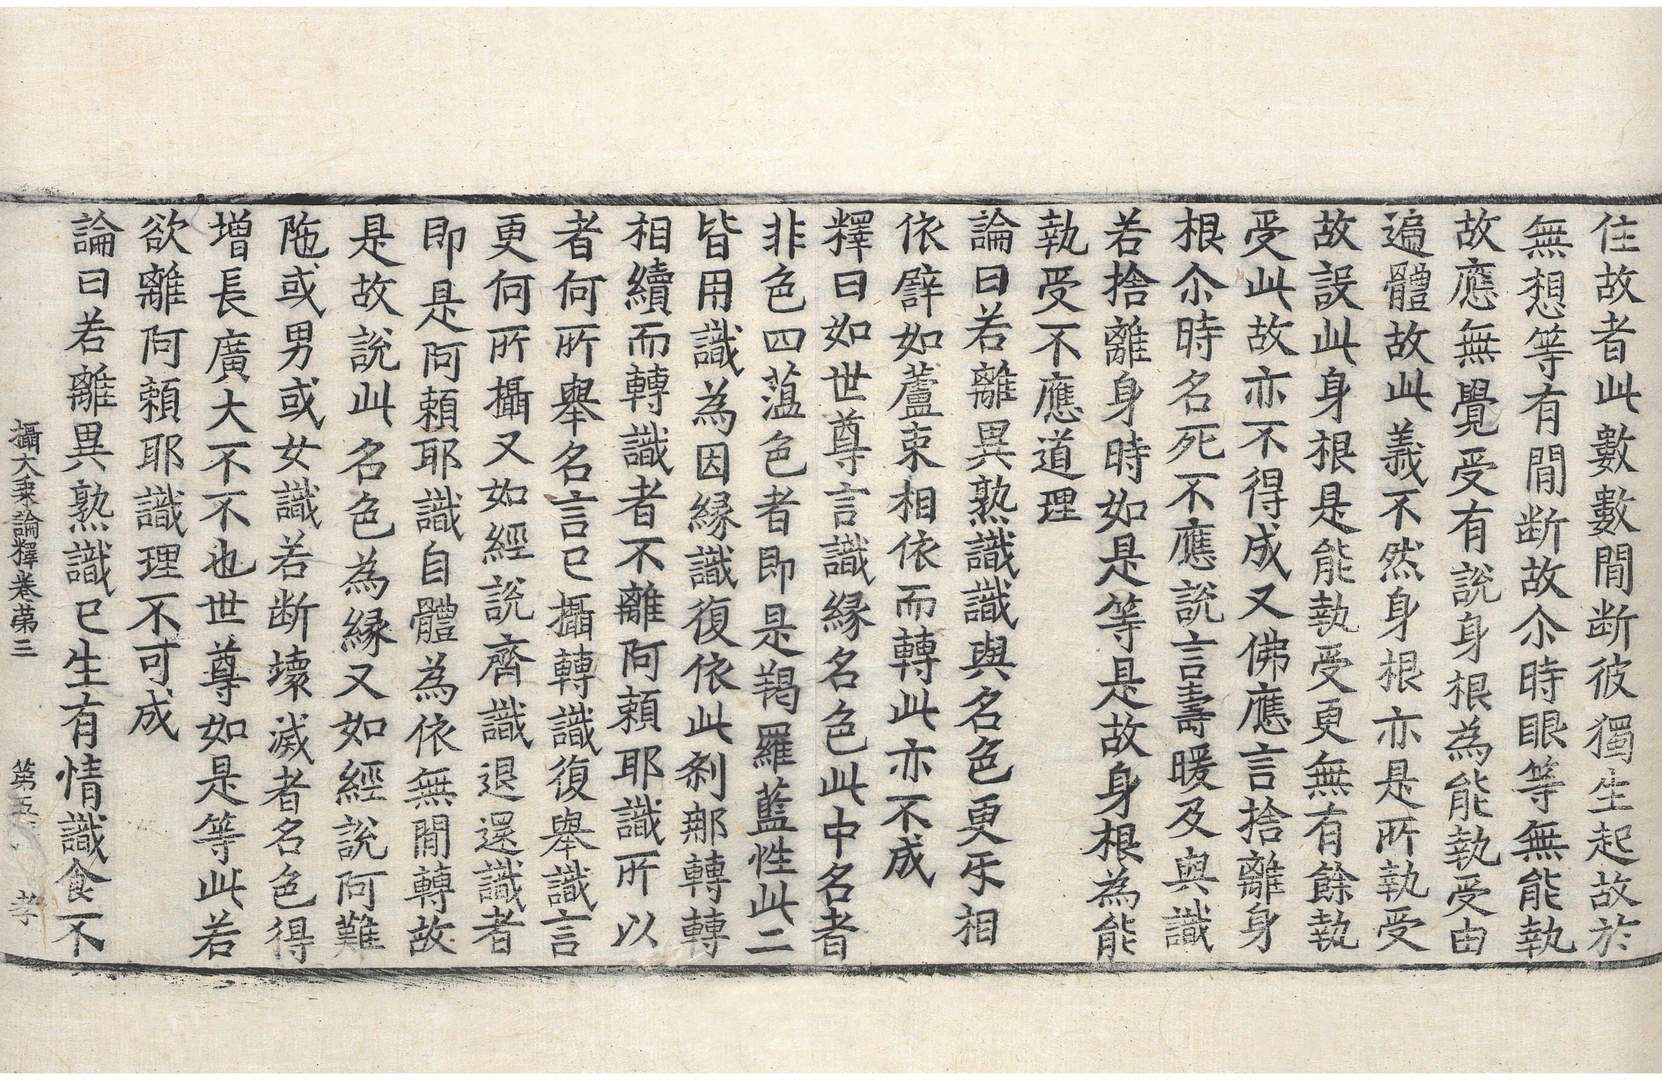 住故者此數數間断彼獨生起故於
無想等有間断故尒時眼等無能執
故應無覺受有說身根為能執受由
遍體故此義不然身根亦是所執受
故設此身根是能執受更無有餘執
受此故亦不得成又佛應言捨離身
根尒時名死不應說言壽暖及與識
若捨離身時如是等是故身根為能
執受不應道理
論曰若離異熟識識與名色更互相
依譬如蘆束相依而轉此亦不成
釋曰如世尊言識緣名色此中名者
非色四蕰色者即是羯羅藍性此二
皆用識為因緣識復依此剎那轉轉
相續而轉識者不離阿賴耶識所以
者何所舉名言已攝轉識復舉識言
更何所攝又如經說齊識退還識者
即是阿賴耶識自體為依無間轉故
是故說此名色為緣又如經說阿難
陁或男或女識若断壞滅者名色得
增長廣大不不也世尊如是等此若
欲離阿賴耶識理不可成
論曰若離異熟識已生有情識食不
攝大乘論釋卷第三 第五 孝